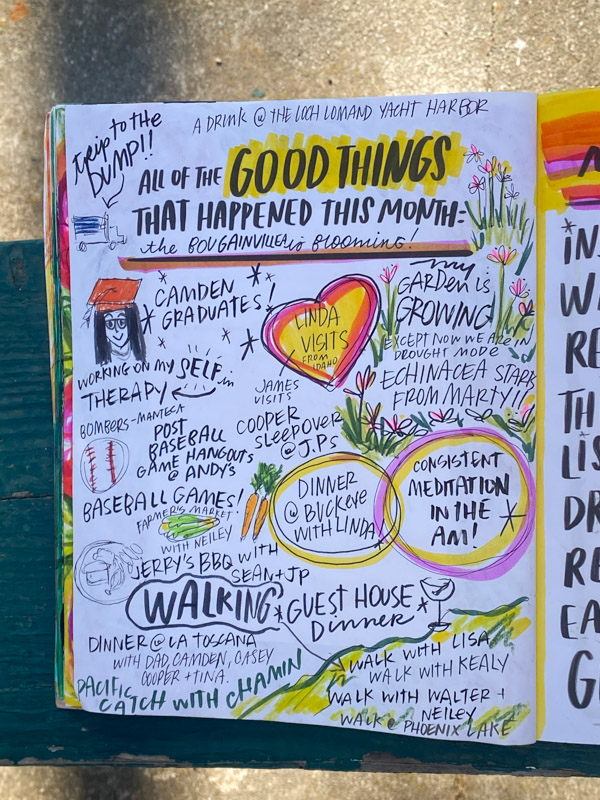 A DRINK @ THE LOCH LOMAND YACHT HARBOR
trip to the
DUMP!!
ALL OF THE GOOD THINGS
THAT HAPPENED THIS MONTH:
the BOUGAINVILLEA is BLOOMING!
CAMDEN
GRADUATES!
LINDA
VISITS
FROM
IDAHO
my
GARDEN is
GROWING
EXCEPT NOW WE ARE IN
DROUGHT MODE
ECHINACEA STARR
FROM MARTY!!
WORKING ON MY SELF in
THERAPY
JAMES
VISITS
BOMBERS-MANTECA
POST
BASEBALL
GAME HANGOUTS
@ ANDY'S
COOPER
SLEEPOVER
@ J.P.s
BASEBALL GAMES!
FARMER'S MARKET
WITH NEILEY
DINNER
@ BUCKEYE
WITH LINDA!
CONSISTENT
MEDITATION
IN THE
AM!
JERRY'S BBQ WITH
SEAN + JP
WALKING
GUEST HOUSE
Dinner
DINNER @ LA TOSCANA
WITH DAD, CAMDEN, CASEY
COOPER + TINA.
PACIFIC
CATCH WITH CHAMIN
WALK WITH LISA
WALK WITH KEALY
WALK WITH WALTER +
NEILEY
WALK @ PHOENIX LAKE
IN
W
RE
TH
LIS
DR
RE
EA
G